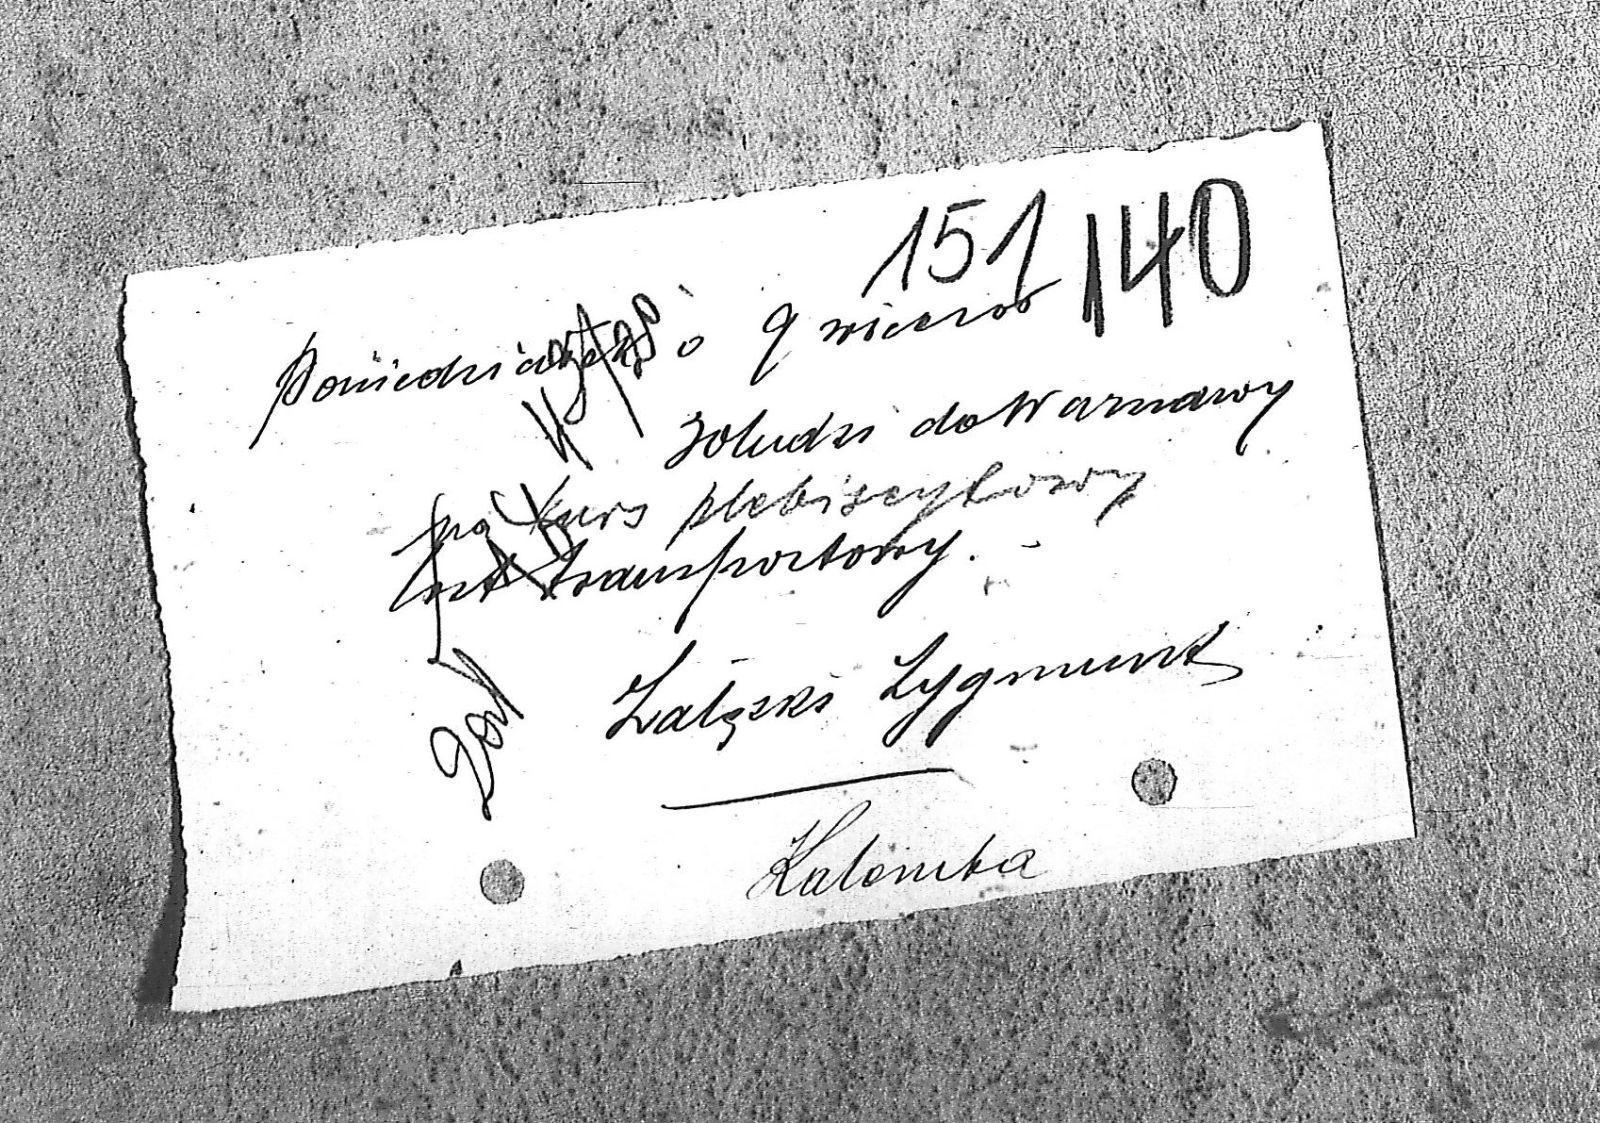 151 140
Poniedziałek o 9 wieczor
do Warszawy
na kurs plebiscytowy
list transportowy. -
Załęski Zygmunt
Kalomba